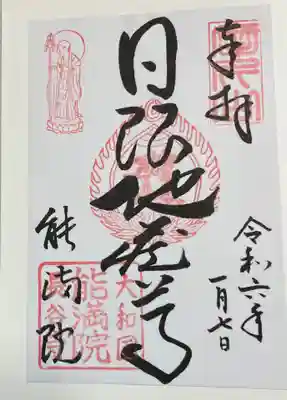 奉拝
令和六年
一月七日
日限地蔵尊
能満院
大和国
能満院